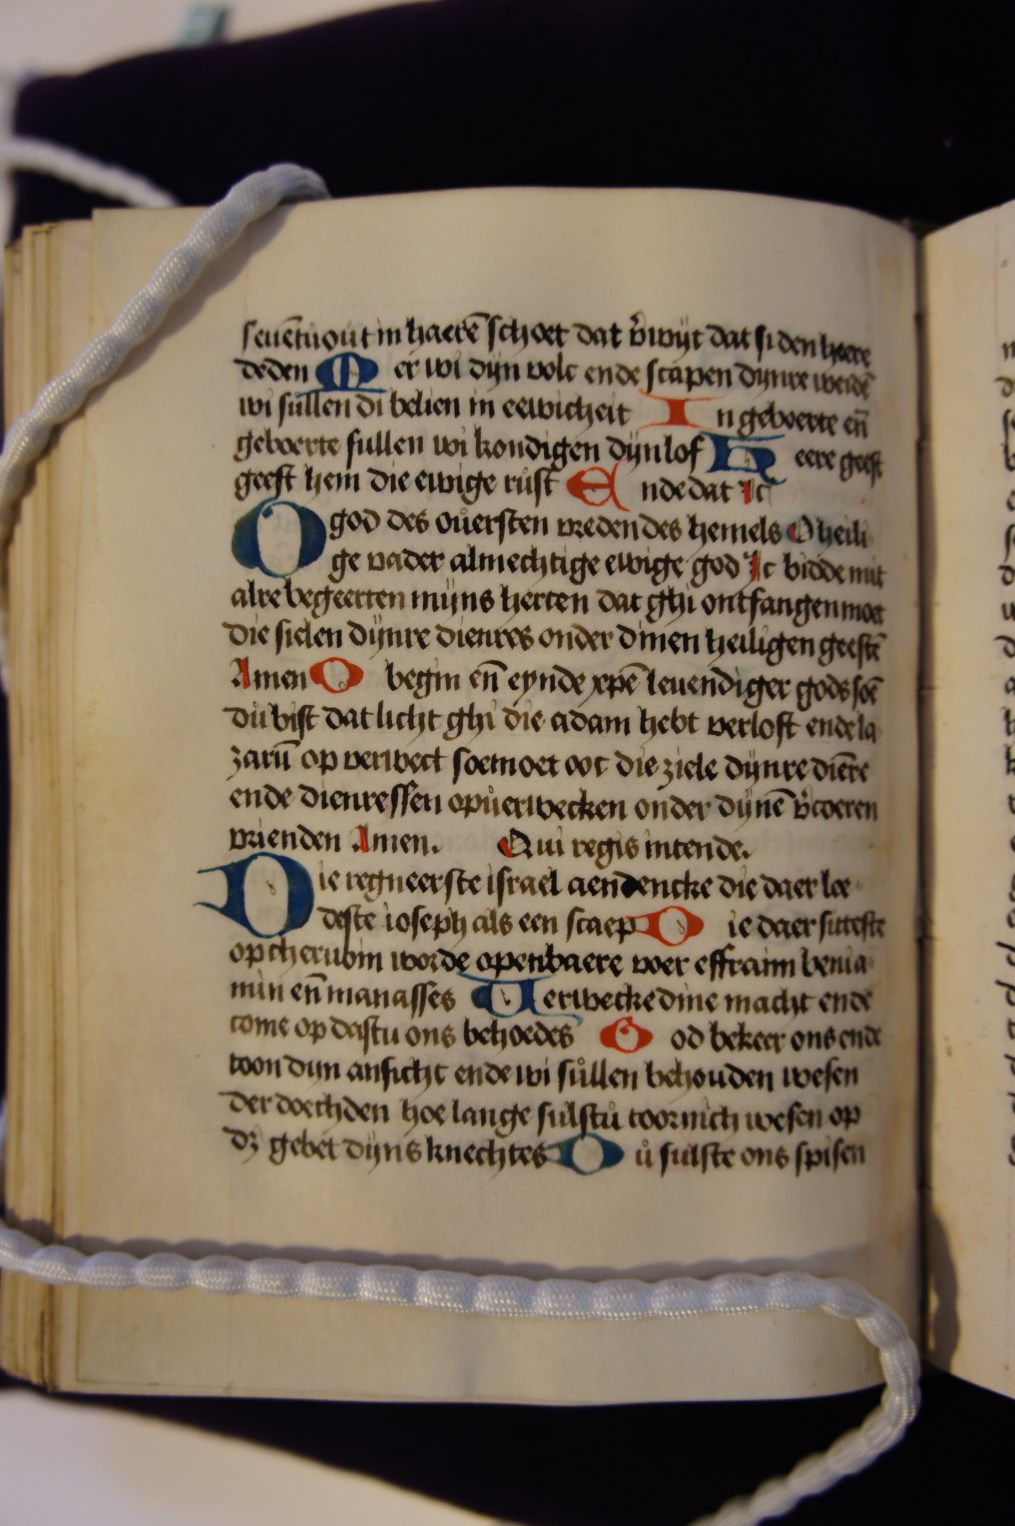 seuēnuout in haerē schoet dat v̄wijt dat si den heere
deden Mer wi dijn volc ende scapen dijnre weidē
wi sullen di belien in eewicheit In geboerte en̄
geboerte sullen wi kondigen dijn lof Heere geest
geest hem die ewige rust Ende dat Ic
O god des ouersten vreden des hemels O heili
ge vader almechtige ewige god Ic bidde mit
alre begeerten mijns herten dat ghi ontfangen moet
die sielen dijnre dienres onder dinen heiligen geestē
Amen O begin en̄ eynde xp̄e leuendiger gods soē
du bist dat licht ghi die adam hebt verlost ende la
zarū op verwect soe moet ooc die ziele dijnre diēre
ende dienressen op uerwecken onder dijnē v̄coeren
vrienden Amen. Qui regis intende.
Die regneerste israel aendencke die daer lee
deste ioseph als een scaep Die daer sitteste
op cherubin worde openbaere voer effraim benia
min en̄ manasses Verwecke dine macht ende
come op dastu ons behoedes God bekeer ons ende
toon dijn ansicht ende wi sullen behouden wesen
der doechden hoe lange sulstu toornich wesen op
dʒ gebet dijns knechtes Du sulste ons spisen